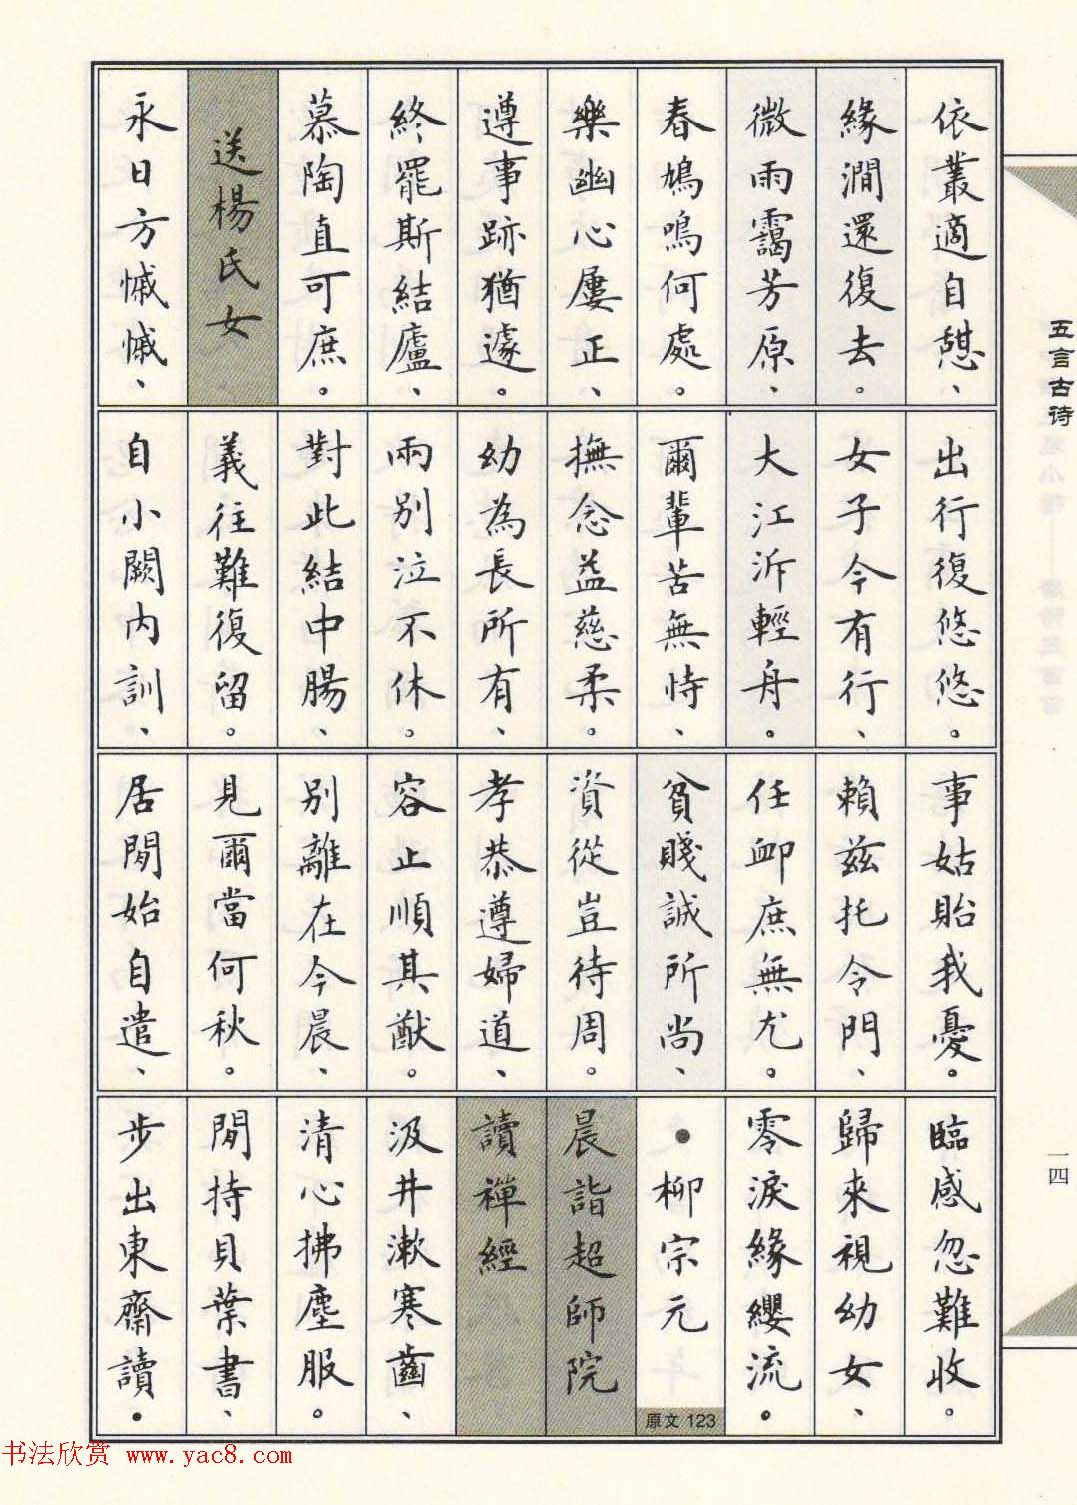 依叢適自憩、
緣澗還復去。
微雨靄芳原、
春鳩鳴何處。
樂幽心屢正、
遵事跡猶遽。
終罷斯結廬、
慕陶直可庶。
送楊氏女
永日方慽慽、
出行復悠悠。
女子今有行、
大江泝輕舟。
爾輩苦無恃、
撫念益慈柔。
幼為長所有、
兩別泣不休。
對此結中腸、
義往難復留。
自小闕內訓、
事姑貽我憂。
賴茲托令門、
任卹庶無尤。
貧賤誠所尚、
資從豈待周。
孝恭遵婦道、
容止順其猷。
別離在今晨、
見爾當何秋。
居閒始自遣、
臨感忽難收。
歸來視幼女、
零淚緣纓流。
●柳宗元
原文 123
晨詣超師院
讀禪經
汲井漱寒齒、
清心拂塵服。
閒持貝葉書、
步出東齋讀。
五言古诗
一四
书法欣赏 www.yac8.com